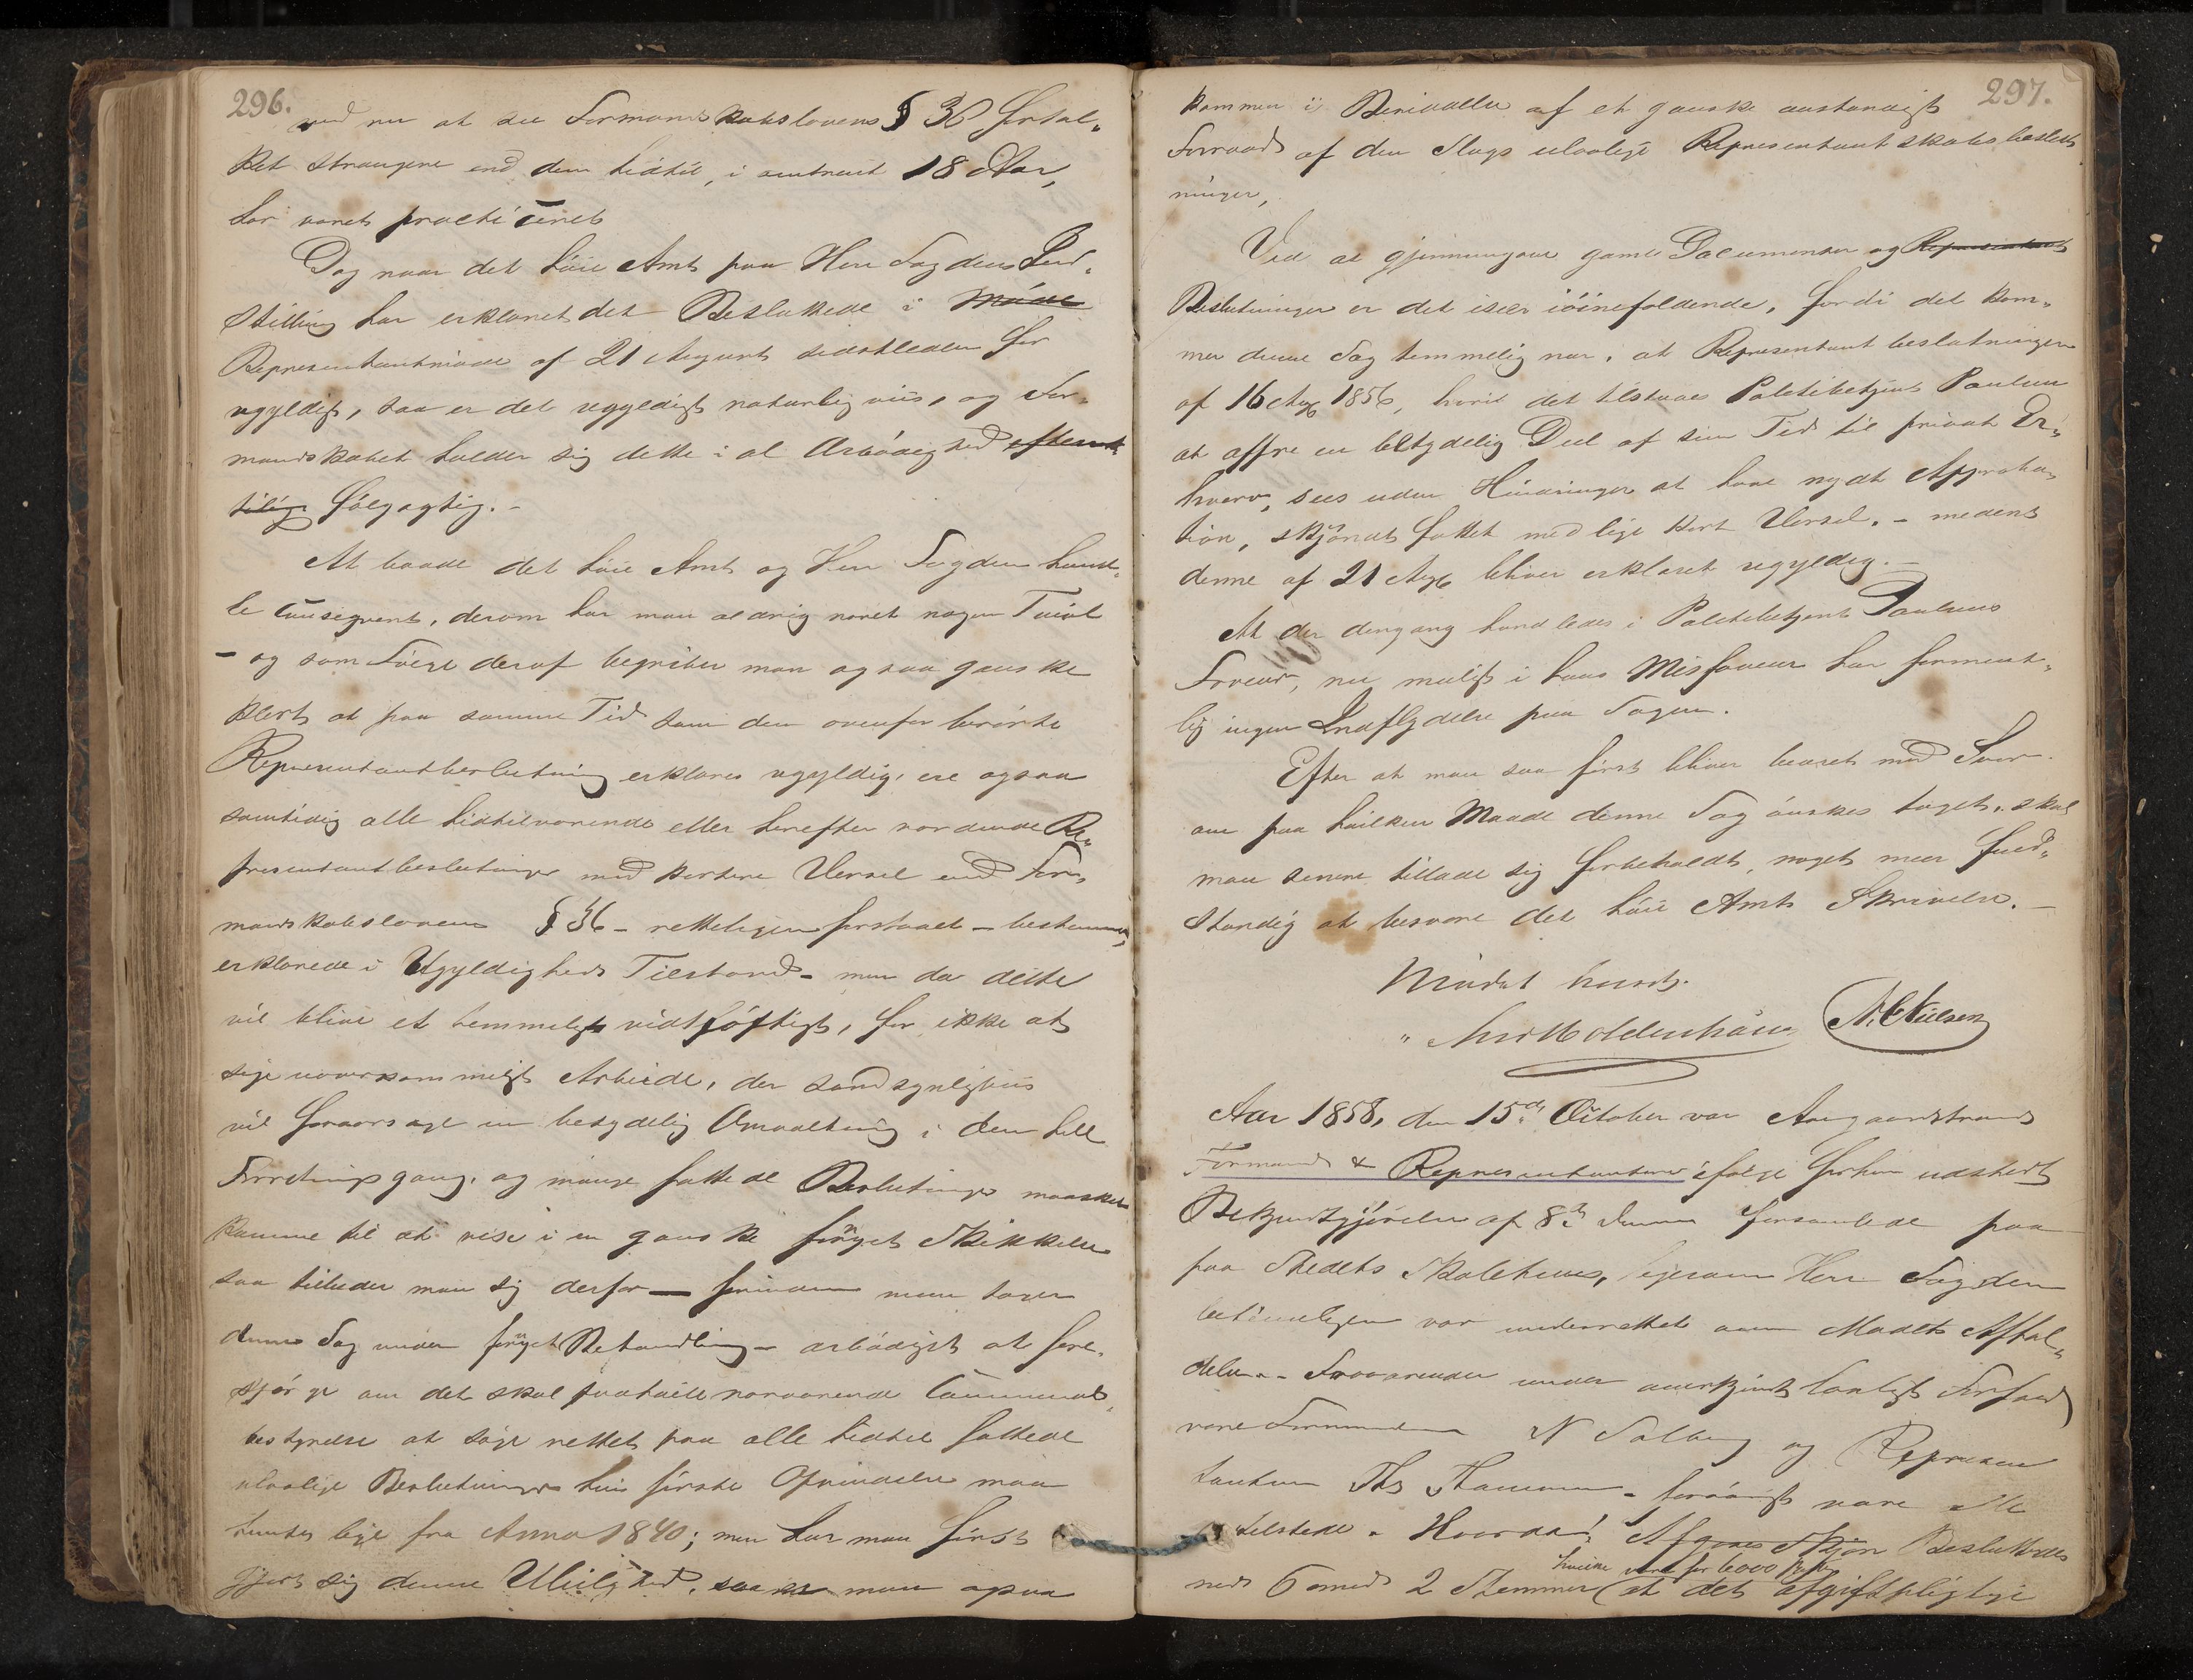 296.
ved nu at see Formandskabslovens § 36 fortol„
ket strængere end den hidtil, i omtrent 18 Aar,
har været practiceret
Dog naar det høie Amt paa Herr Fogdens Ind„
stilling har erklæret det Besluttede i Møde
Representantmøde af 21 August sidstleden for
ugyldigt, saa er det ugyldigt naturligviis, og For„
mandskabet holder sig dette i al Ærbødighed
følgagtig. -
At baade det høie Amt og Herr Fogden hand„
le consequent, derom har man aldrig næret nogen Tvivl
- og som Følge deraf begriber man ogsaa ganske
klart at paa samme Tid som den ovenfor berørte
Representantbeslutning erklæres ugyldig, ere ogsaa
samtidig alle hidtilværende eller herefter vordende Re„
presentantbeslutninger med kortere Varsel end For„
mandskabslovens § 36 - retteligen forstaaet - bestemmer,
erklærede i Ugyldigheds Tilstand - men da dette
vil blive et temmeligt vidtløftigt, for ikke at
sige uoverkommeligt Arbeide, der sandsynligviis
vil foraarsage en betydelig Omvæltning i den hele
Forretningsgang, og mange fattede Beslutninger maaskee
komme til at vise i en ganske fornyet Skikkelse
saa tillader man sig derfor — forinden man tager
denne Sag under fornyet Behandling - ærbødigst at fore„
spørge om det skal paahvile nærværende Communal„
bestyrelse at søge rettet paa alle hidtil fattede
ulovlige Beslutninger hvis første Oprindelse maa
hentes lige fra Anno 1840; men har man først
gjort sig denne Uleilighed, saa er man ogsaa
297.
kommen i Besiddelse af et ganske anstændigt
Forraad af den Slags ulovlige Representantskabsbeslut
ninger,
Ved at gjennemgaae gamle Documenter og Representant
Beslutninger er det især iøinefaldende, fordi det kom„
mer denne Sag temmelig nær, at Representantbeslutningen
af 16 Aug 1856, hvori det tilstaaes Politibetjent Paulsen
at offre en betydelig Deel af sin Tid til privat Er„
hverv, sees uden Hindringer at have nydt Approba„
tion, skjøndt fattet med lige kort Varsel. - medens
denne af 21 Aug bliver erklæret ugyldig. -
At der dengang handledes i Politibetjent Paulsens
Faveur, nu muligt i hans Misfaveur har forment„
lig ingen Indflydelse paa Sagen.
Efter at man saa først bliver beæret med Svar
om paa hvilken Maade denne Sag ønskes taget, skal
man senere tillade sig forbeholdt, noget meer fuld„
stændig at besvare det høie Amts Skrivelse. -
Mødet hævet.
Moldenhauer A. Nielsen
Aar 1858, den 15de October var Aasgaardstrands
Formænd & Representantere ifølge forhen udstedt
Bekjendtgjørelse af 8de dennes forsamlede paa
paa Stedets Skolehuus, ligesom Herr Fogden
betimeligen var underrettet om Mødets Afhol„
delse. - Fraværende under anerkjendt lovligt Forfald
vare Formanden N Solberg og Represen
tanten Ths Hansen - forøvrigt vare alle
tilstede. Hvorda: Afgaves Skjøn Besluttedes
med 6 imod 2 Stemmer (at det afgiftspligtige
hvilke vare for 6000